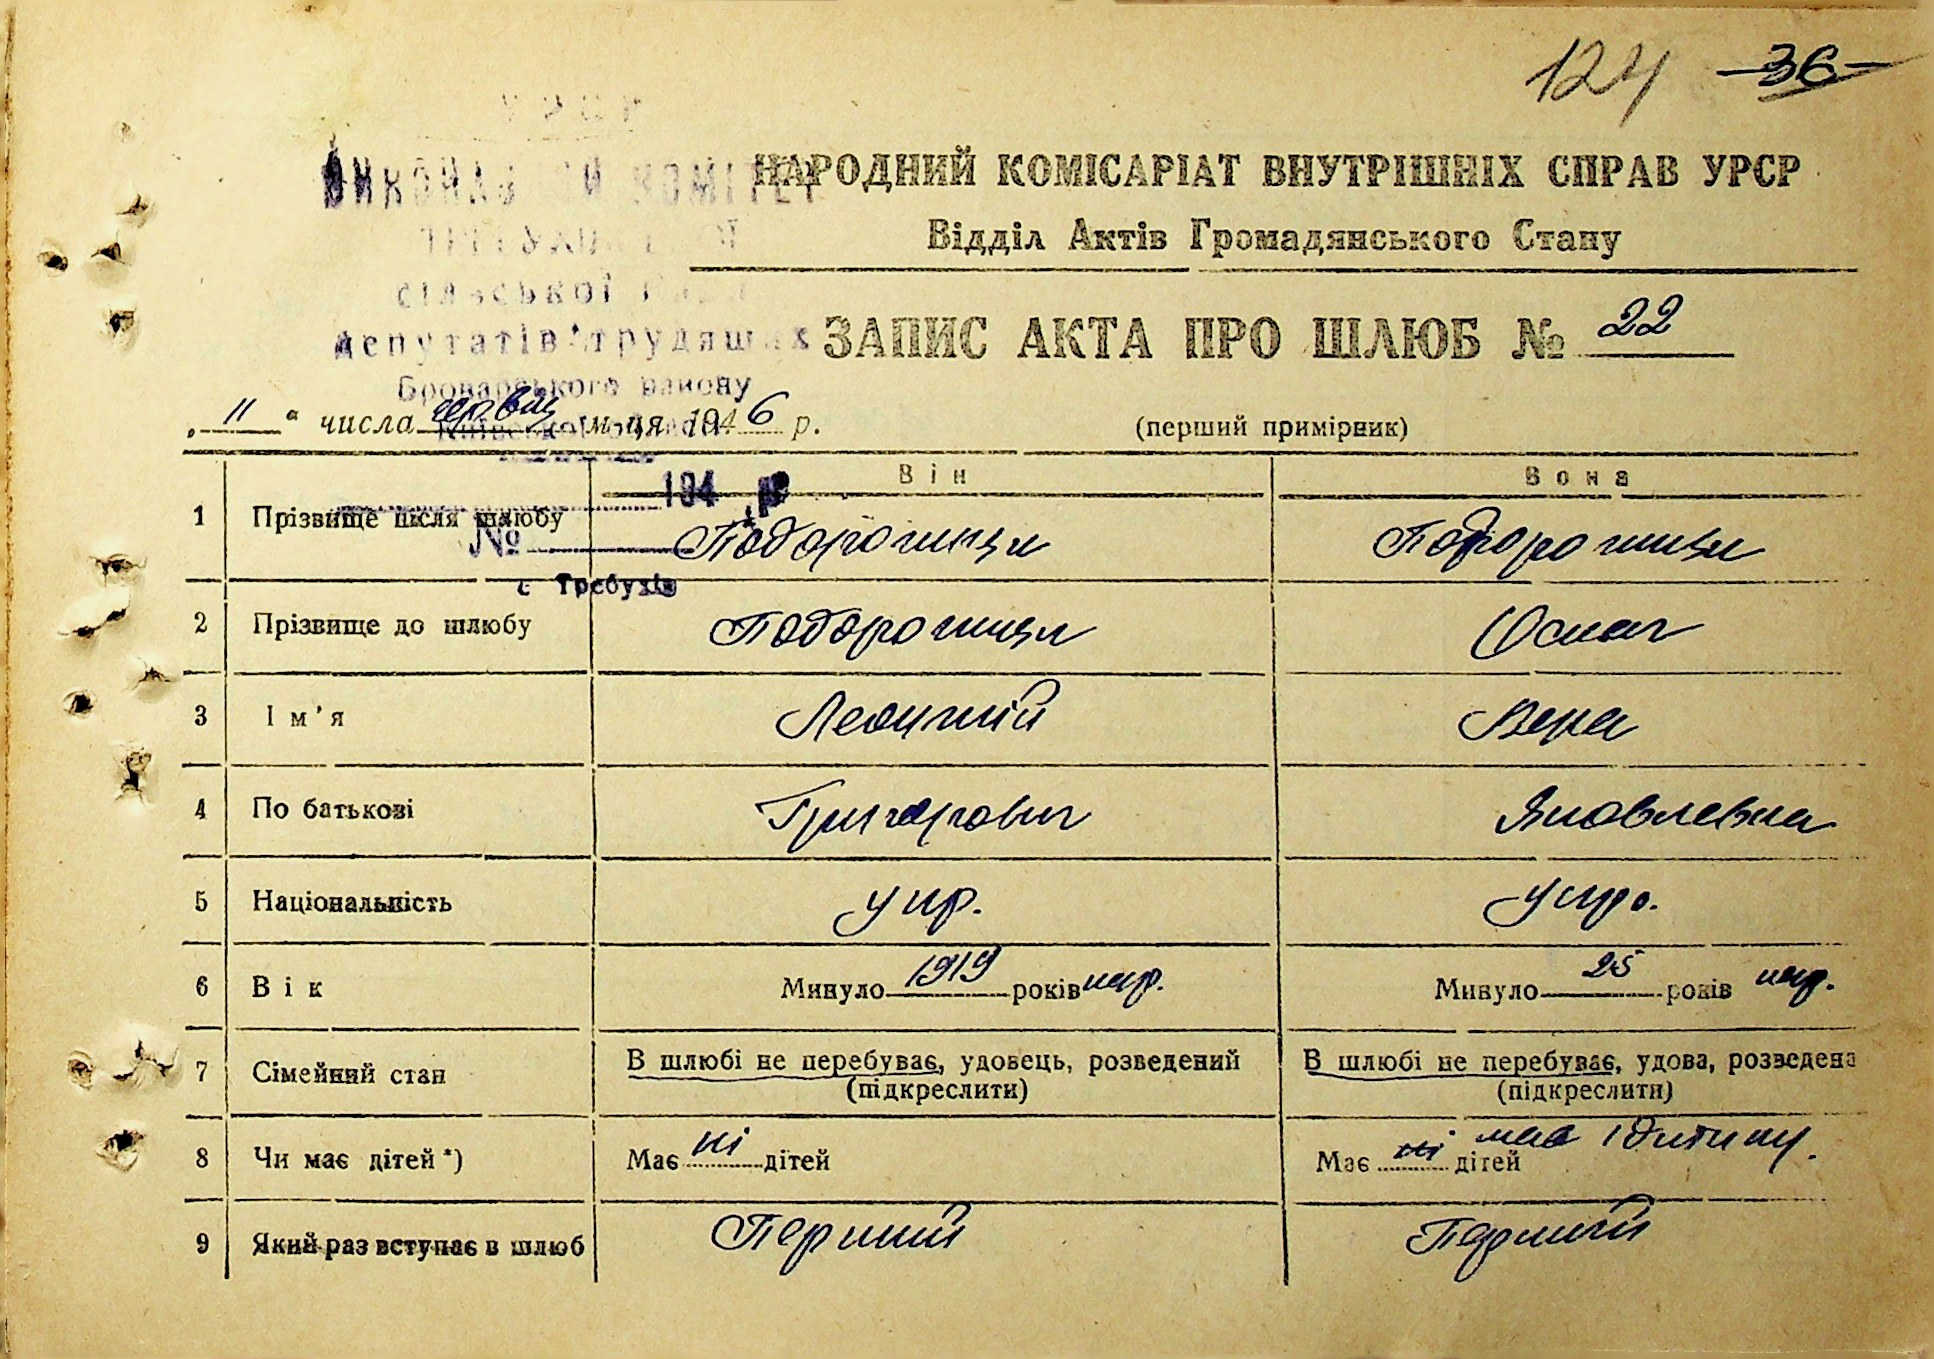 124 36
УРСР
ВИКОНАВЧИЙ КОМІТЕТ
сільської
депутатів трудящих
Броварського району
194 р
№
с Требухів
НАРОДНИЙ КОМІСАРІАТ ВНУТРІШНІХ СПРАВ УРСР
Відділ Актів Громадянського Стану
ЗАПИС АКТА ПРО ШЛЮБ № 22
„11“ числа червня м-ця 1946 р.
(перший примірник)
Він Вона
1 Прізвище після шлюбу Подорожица Подорожица
2 Прізвище до шлюбу Подорожица Осмач
3 Ім'я Леонтій Вера
4 По батькові Григорович Яковлевна
5 Національність укр. укр.
6 Вік Минуло 1919 років нар. Минуло 25 років нар.
7 Сімейний стан В шлюбі не перебуває, удовець, розведений В шлюбі не перебуває, удова, розведена
(підкреслити) (підкреслити)
8 Чи має дітей*) Має ні дітей Має ні дітей має 1 дитину.
9 Який раз вступає в шлюб Перший Перший